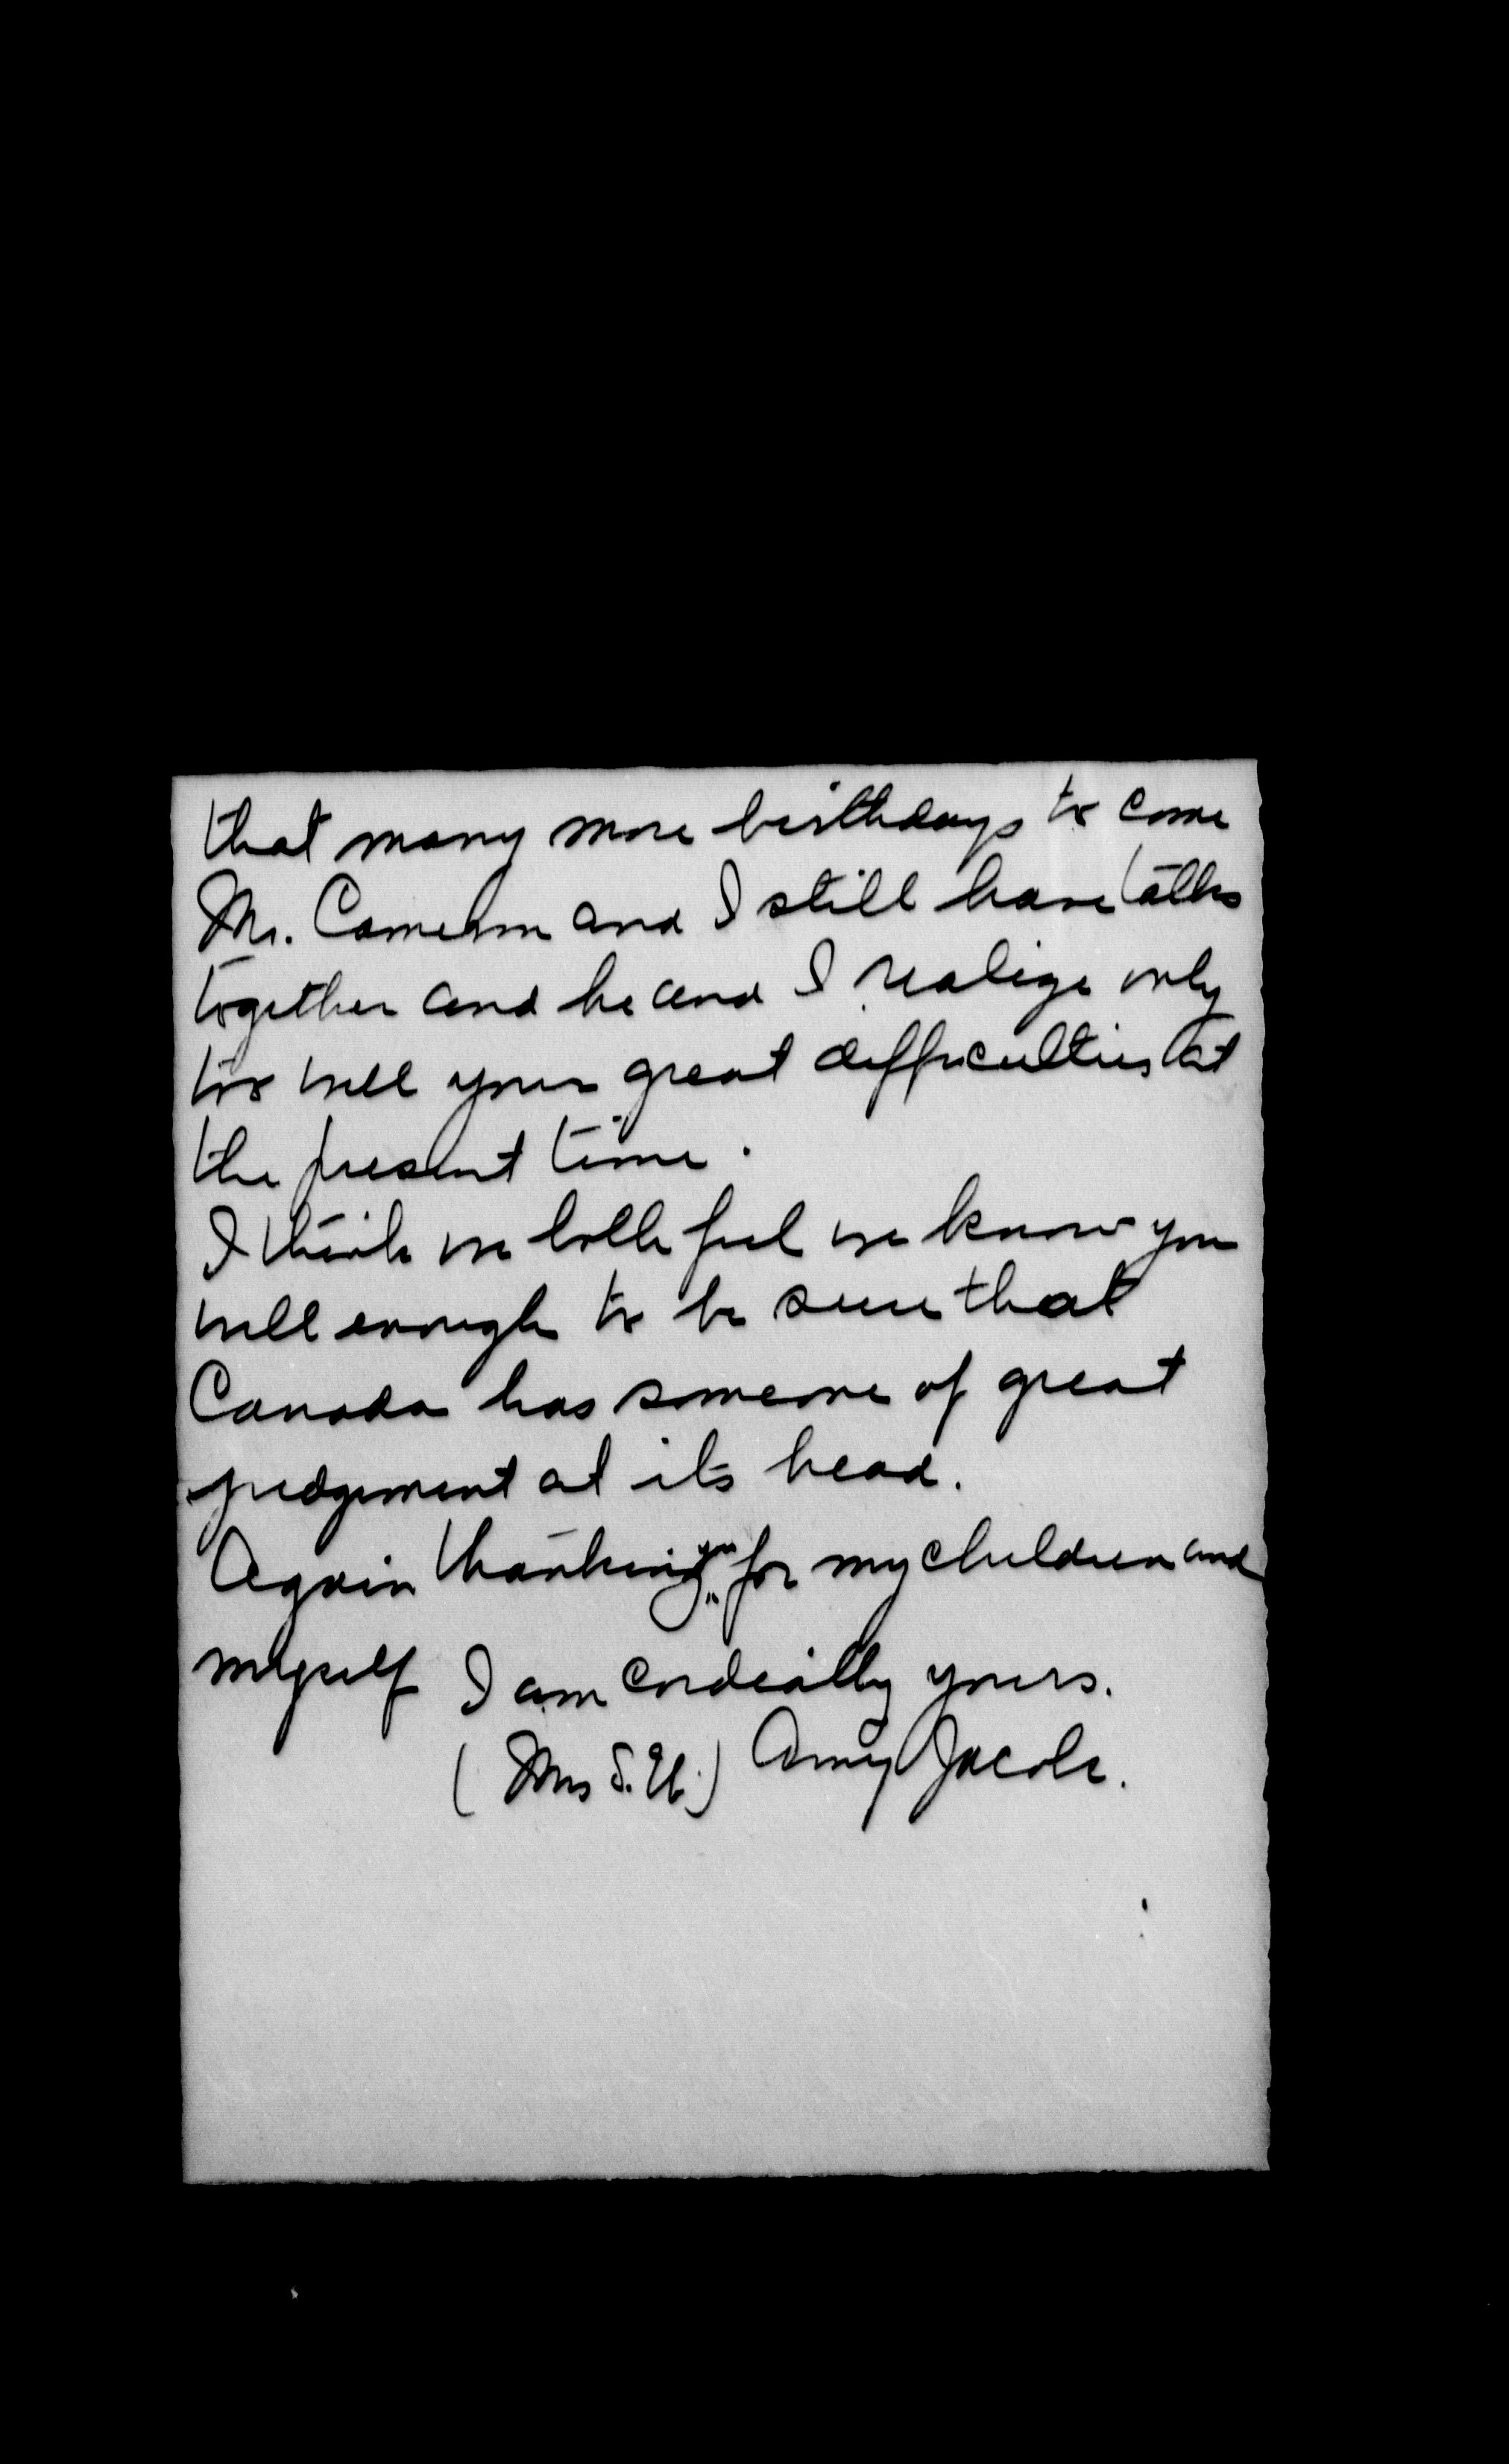 that many more birthdays to come
Mr. Cameron and I still have talks
together and he and I realize only
too well your great difficulties at
the present time.
I think we both feel we know you
well enough to be sure that
Canada has someone of great
judgement at its head.
Again thanking you for my children and
myself I am cordially yours.
(Mrs S. W.) Amy Jacobs.